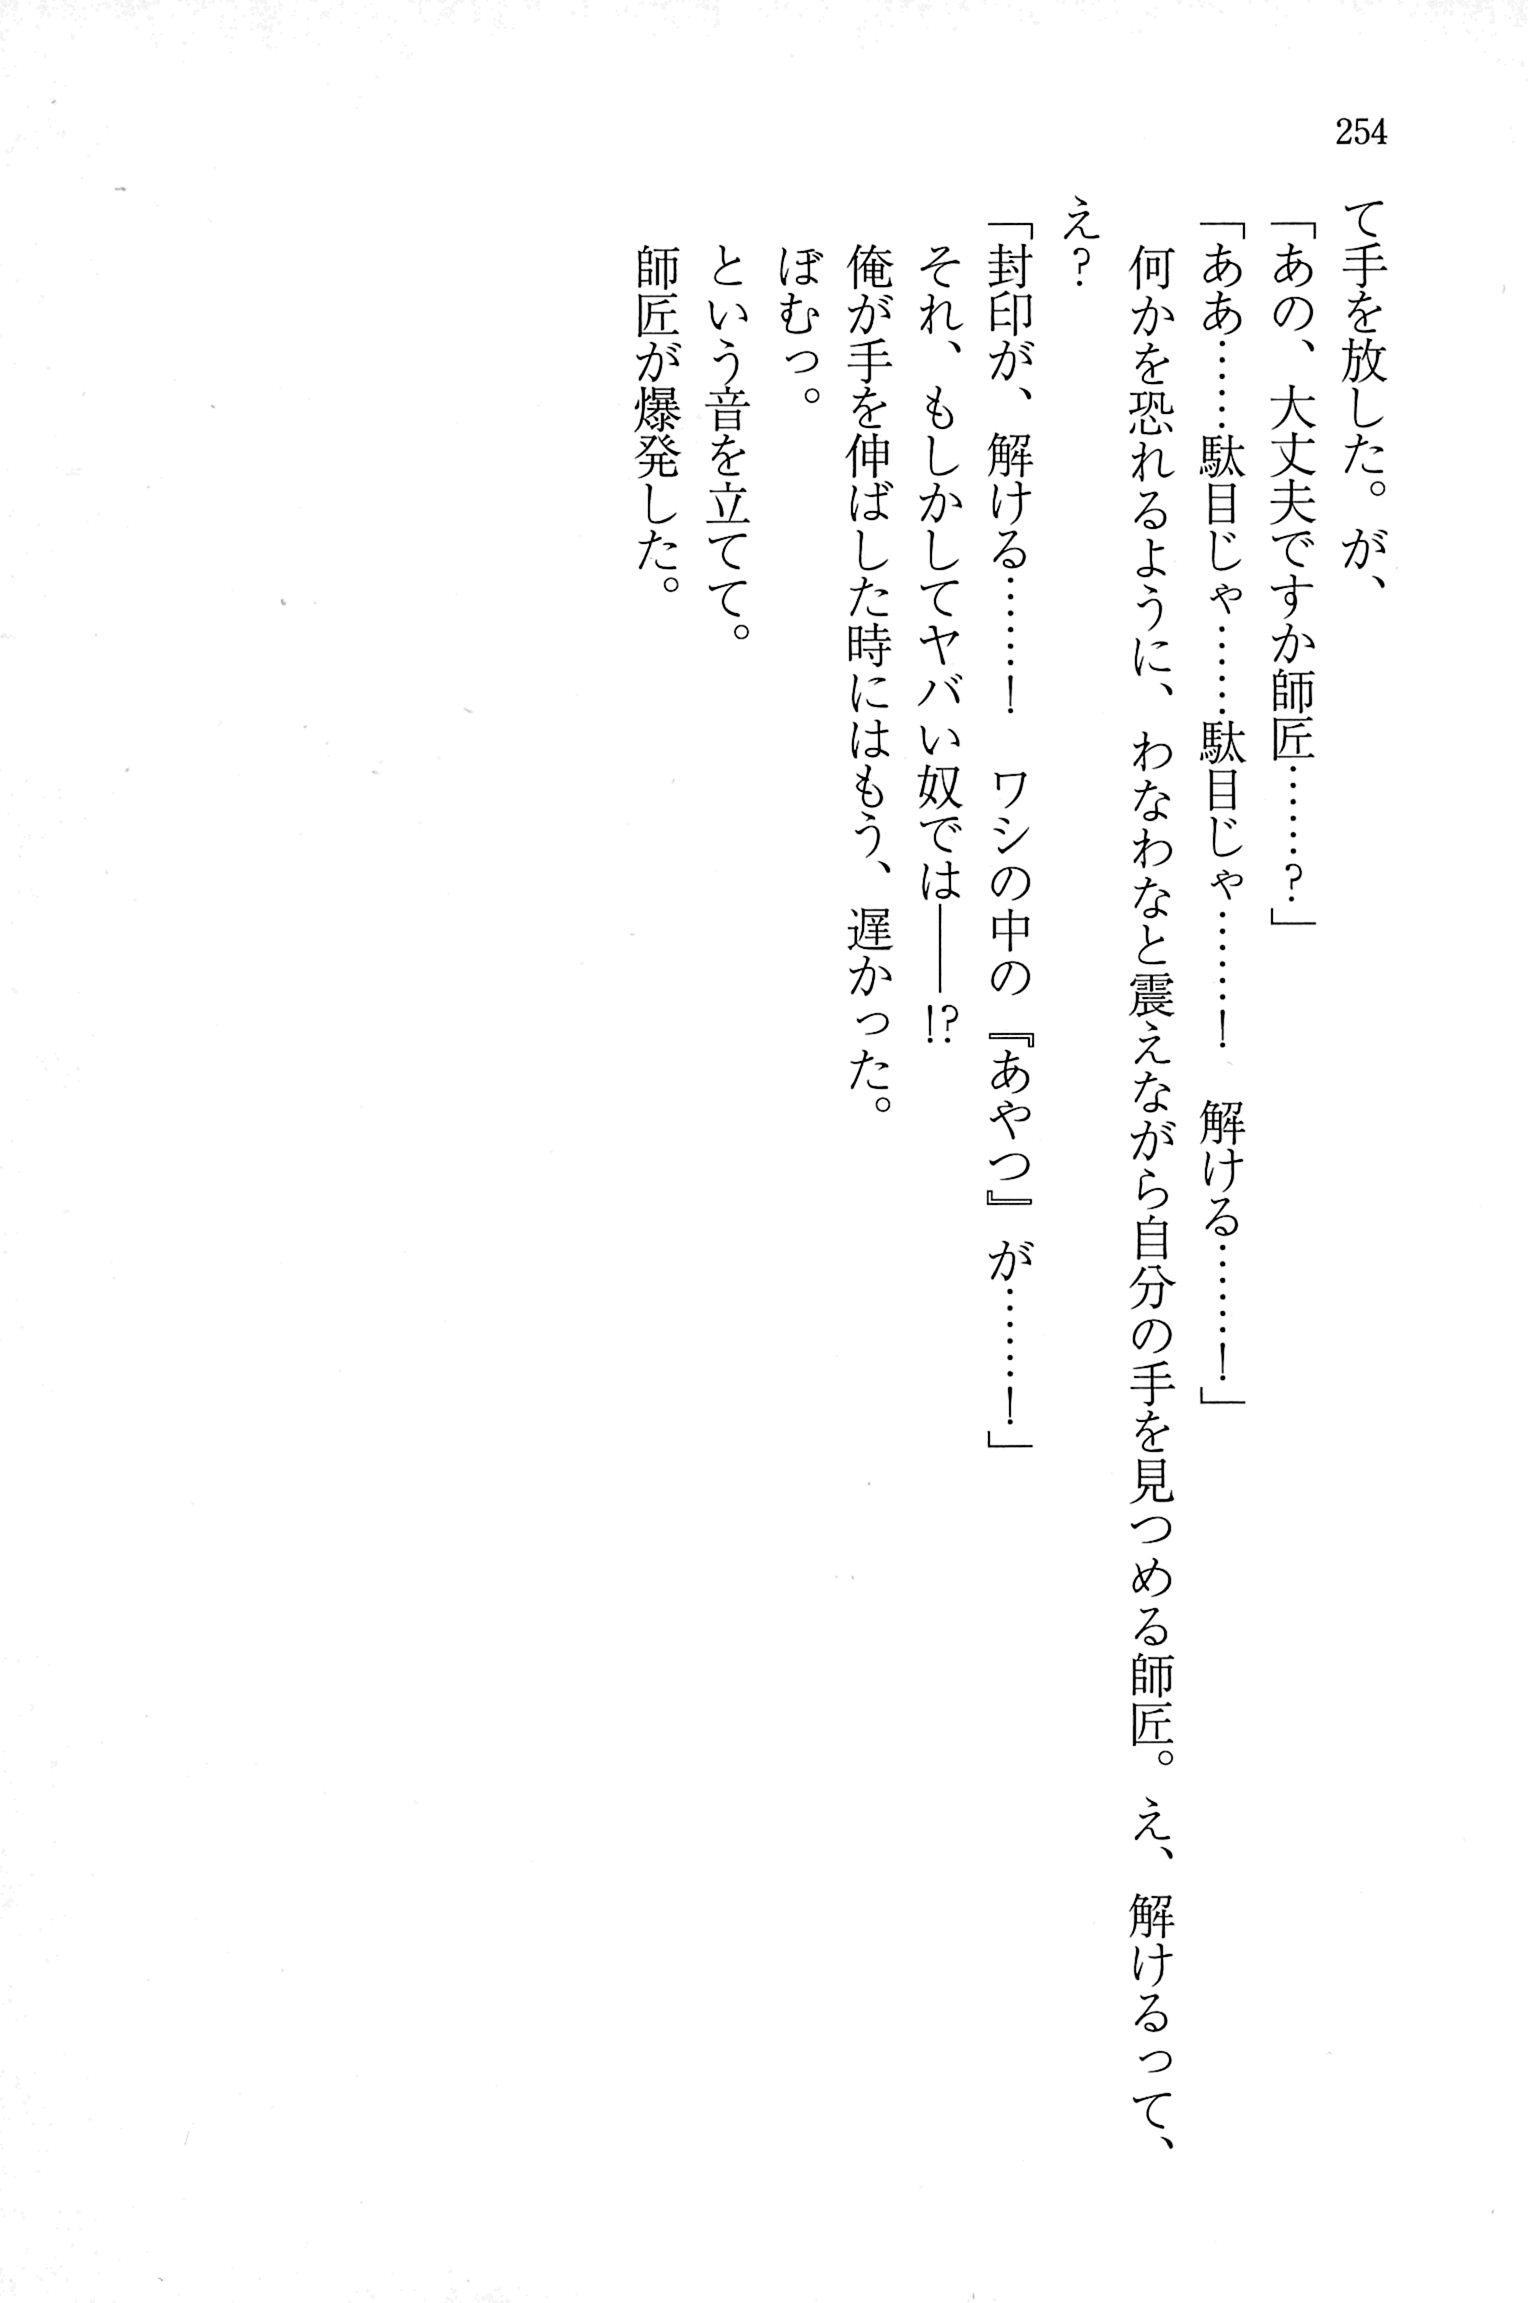 254
て手を放した。が、
「あの、大丈夫ですか師匠……？」
「ああ……駄目じゃ……駄目じゃ……！　解ける……！」
　何かを恐れるように、わなわなと震えながら自分の手を見つめる師匠。え、解けるって、
え？
「封印が、解ける……！　ワシの中の『あやつ』が……！」
　それ、もしかしてヤバい奴では――!?
　俺が手を伸ばした時にはもう、遅かった。
　ぼむっ。
　という音を立てて。
　師匠が爆発した。